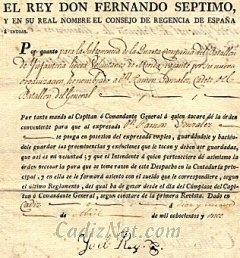 EL REY DON FERNANDO SEPTIMO,
Y EN SU REAL NOMBRE EL CONSEJO DE REGENCIA DE ESPAÑA
É INDIAS.
Por quanto para la Subtenencia de la compañia del Batallon
de Infanteria ligera Voluntarios de Merida vacante por su nueva
he nombrado á Ramon Gonzalez Cadete del
Batallon del General
Por tanto mando al Capitan ó Comandante General á quien tocare dé la órden
conveniente para que al expresado Ramon Gonzalez
se ponga en posesion del expresado empleo, guardándole y haciéndole
guardar las preeminencias y exênciones que le tocan y deben ser guardadas, que
así es mi voluntad, y que el Intendente á quien perteneciere dé asimismo la
órden necesaria para que se tome razon de este Despacho en la Contaduría princi-
pal, y en ella se le formará asiento con el sueldo que le corresponde, segun
el último Reglamento, del qual ha de gozar desde el dia del Cúmplase del Capitan
ó Comandante General, segun constare de la primera Revista. Dado en
Cadiz á de
de Abril de mil ochocientos y once
Yo el Rey
CadizNet.com